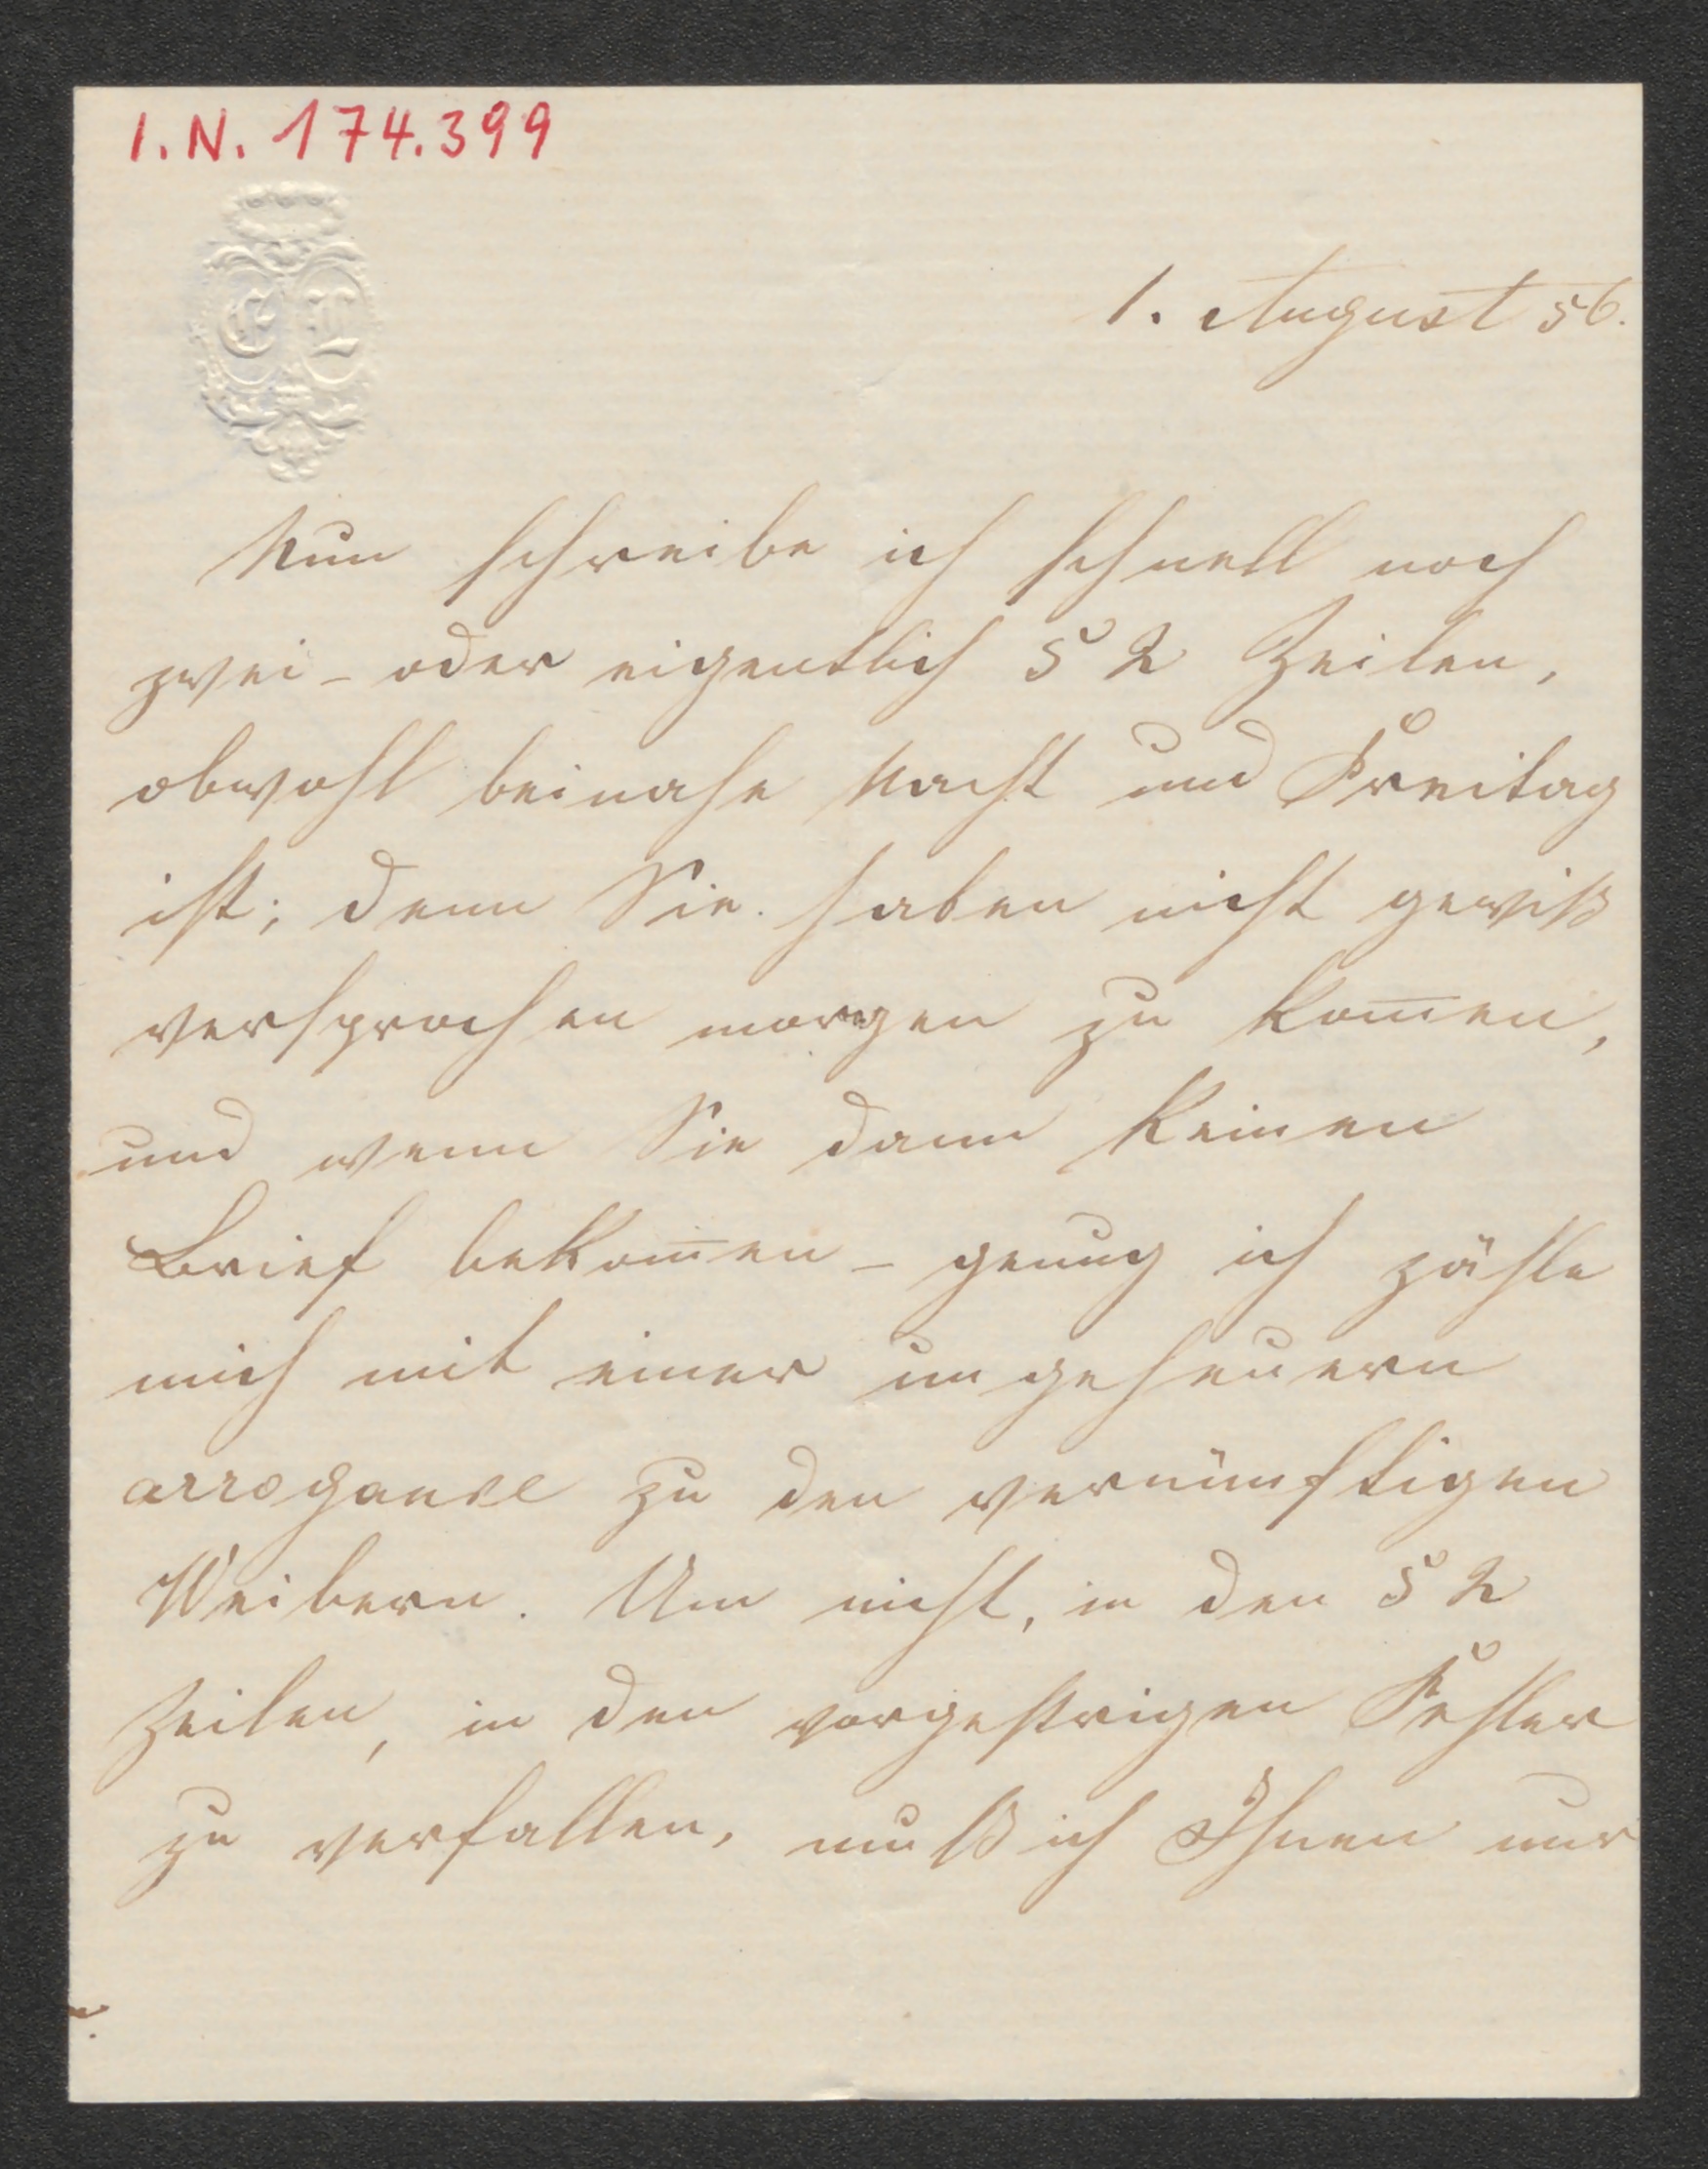 I.N. 174.399
C L
1. August 56.
Nun schreibe ich schnell noch
zwei – oder eigentlich 52 Zeilen,
obwohl beinahe Nacht und Freitag
ist; denn Sie haben nicht gewiß
versprochen morgen zu kom̅en,
und wenn Sie dann keinen
Brief bekom̅en – genug ich zähle
mich mit einer ungeheuern
arrogance zu den vernünftigen
Weibern. Um nicht, in den 52
Zeilen, in den vorgestrigen Fehler
zu verfallen, muß ich Ihnen nur